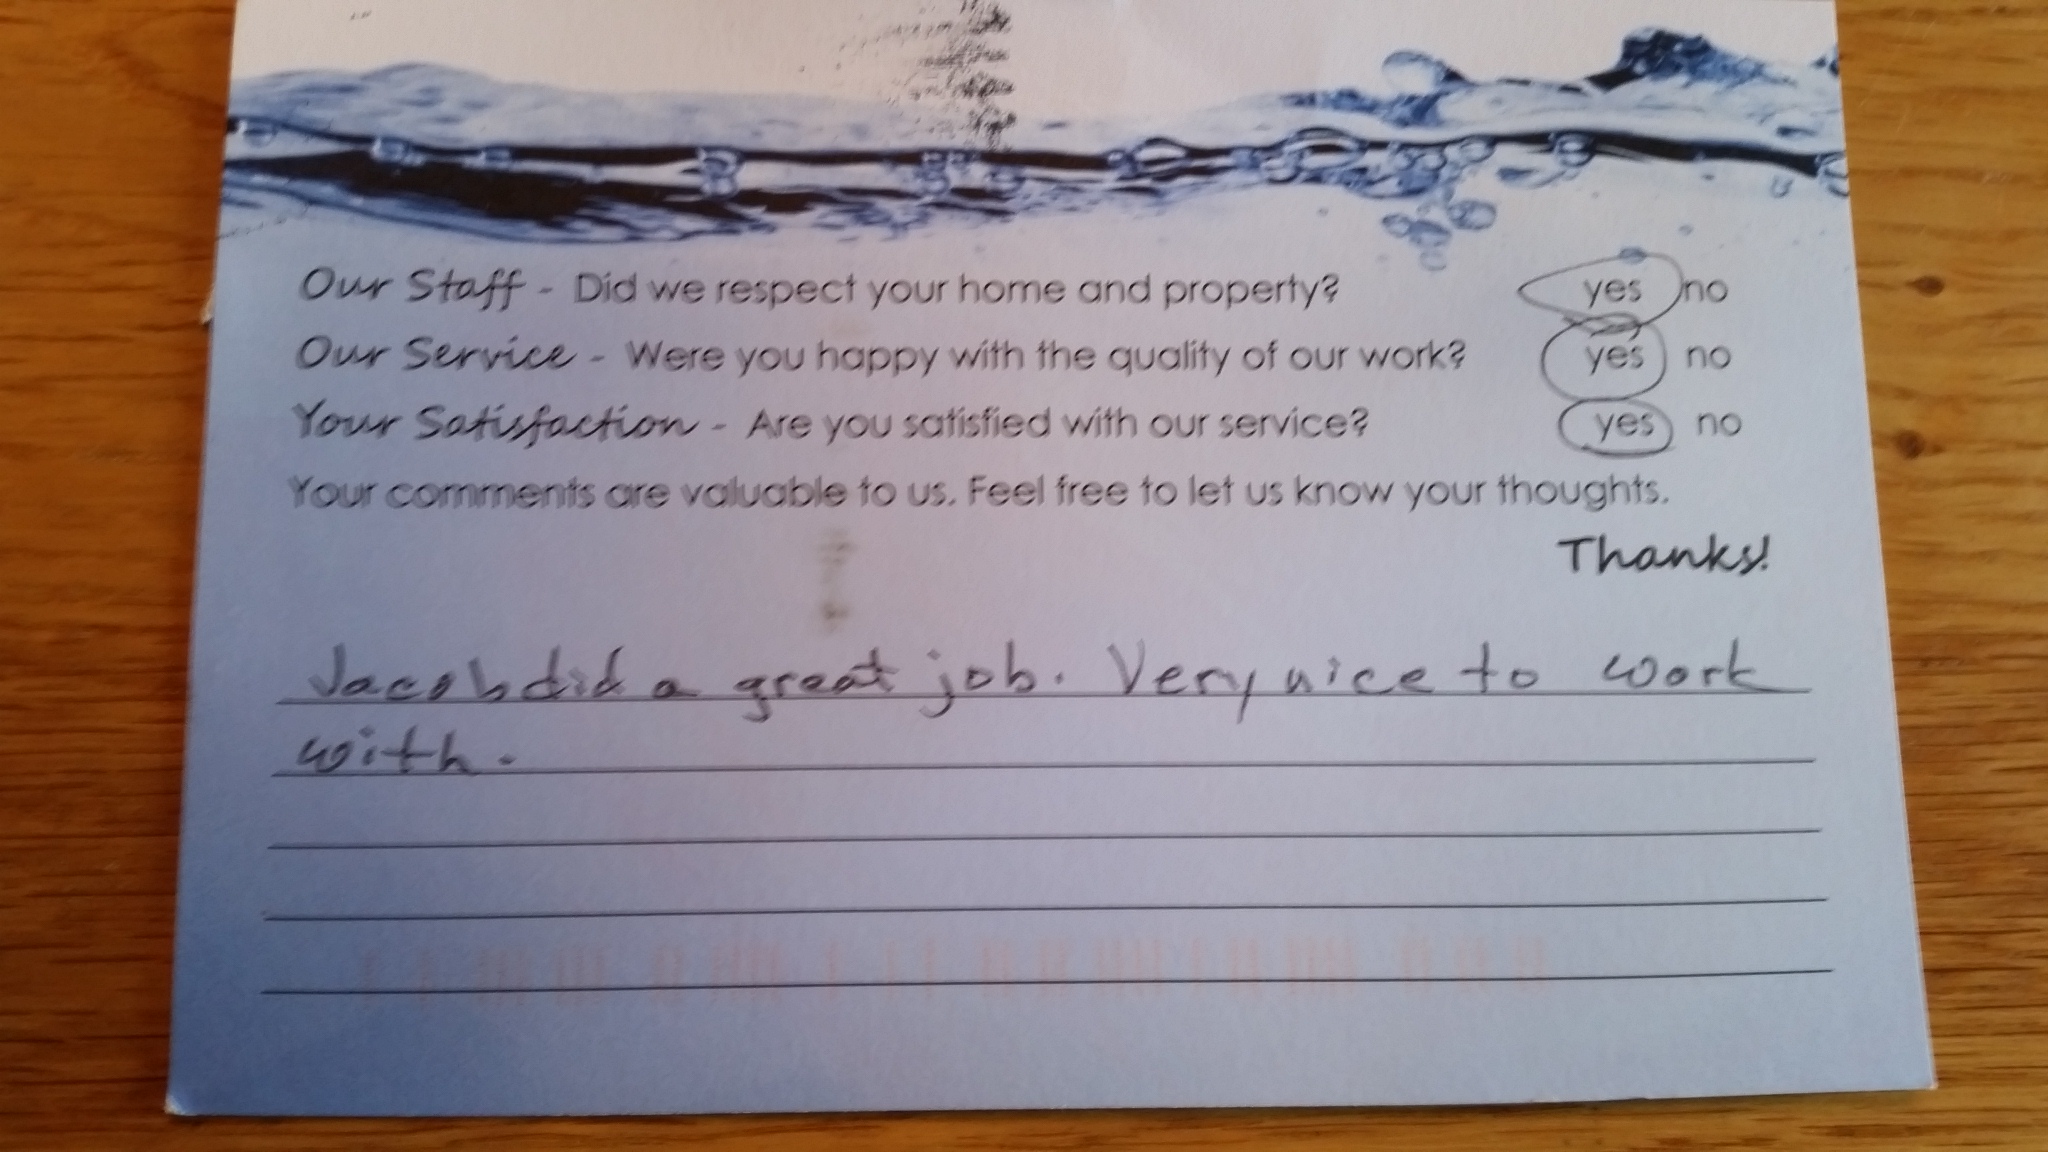 Our Staff - Did we respect your home and property? yes no
Our Service - Were you happy with the quality of our work? yes no
Your Satisfaction - Are you satisfied with our service? yes no
Your comments are valuable to us. Feel free to let us know your thoughts.
Thanks!
Jacob did a great job. Very nice to work
with.